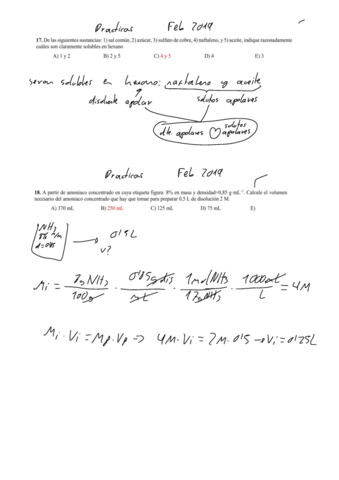 Practicas Feb 2019
17. De las siguientes sustancias: 1) sal común, 2) azúcar, 3) sulfato de cobre, 4) naftaleno, y 5) aceite, indique razonadamente
cuáles son claramente solubles en hexano
A) 1 y 2 B) 2 y 5 C) 4 y 5 D) 4 E) 3
seran solubles en hexano: naftaleno y aceite
disolvente apolar solutos apolares
dte. apolares solutos apolares
Practicas Feb 2019
18. A partir de amoniaco concentrado en cuya etiqueta figura: 8% en masa y densidad=0,85 g·mL⁻¹. Calcule el volumen
necesario del amoniaco concentrado que hay que tomar para preparar 0,5 L de disolución 2 M.
A) 370 mL B) 250 mL C) 125 mL D) 75 mL E)
NH3
8% m/m
d=0'85
→ 0'5L
V?
Mi = NH3 / 100g · 0'85 / mL · 1mol NH3 / 17g NH3 · 1000mL / L = 4M
Mi · Vi = Mp · Vp → 4M · Vi = 2M · 0'5 → Vi = 0'25L